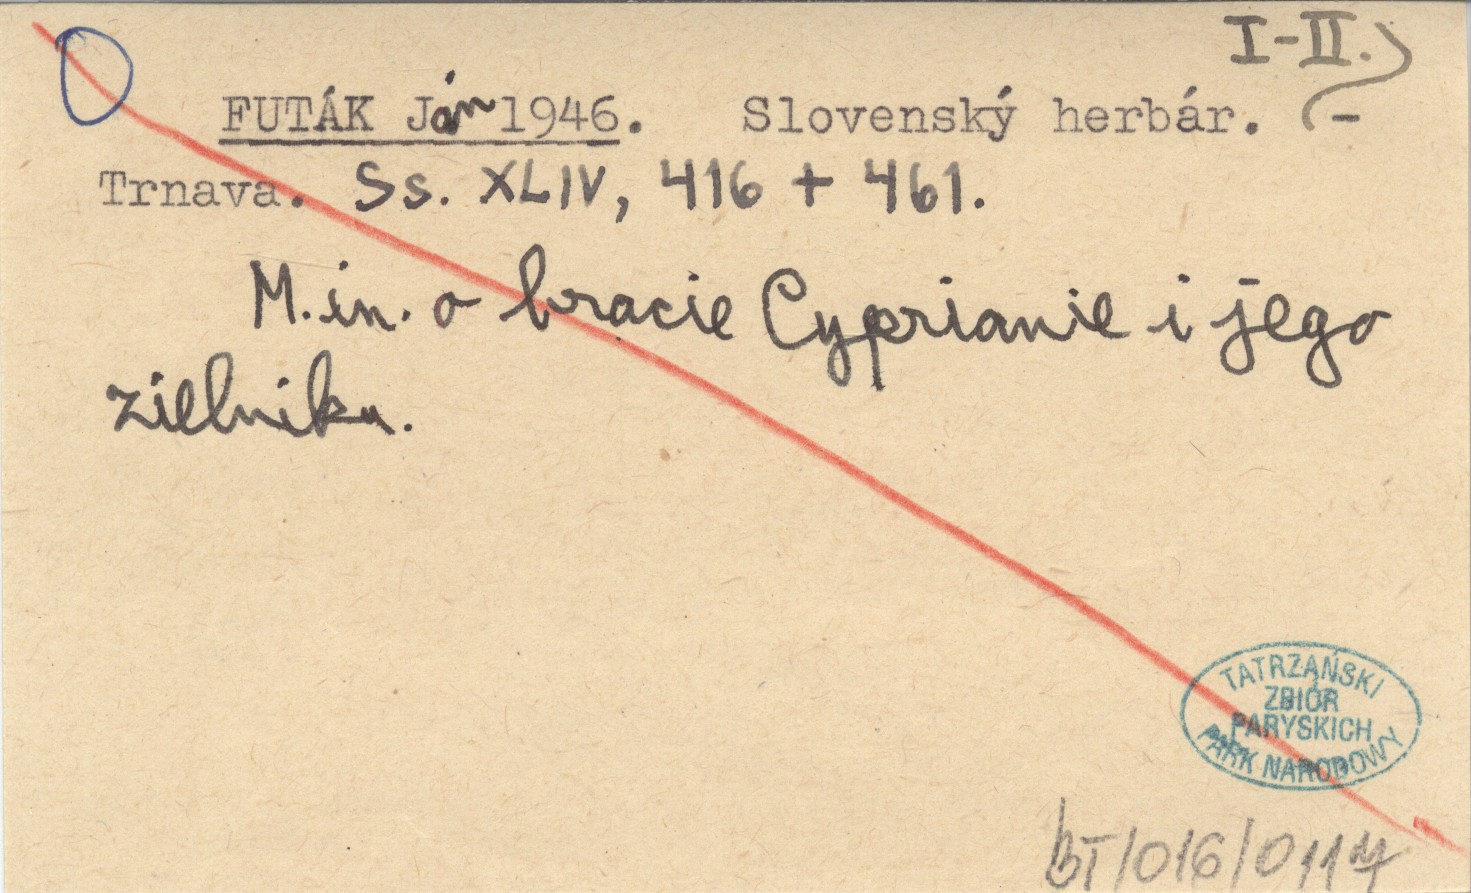 I-II.
FUTÁK Ján 1946. Slovenský herbár. -
Trnava. Ss. XLIV, 416 + 461.
M.in. o bracie Cyprianie i jego
zielniku.
TATRZAŃSKI
ZBIÓR
PARYSKICH
PARK NARODOWY
BT/016/0117